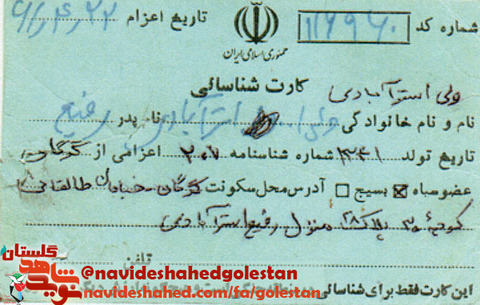 شماره کد ۱۱۶۹۶۰ تاریخ اعزام ۶۱/۴/۲۲
جمهوری اسلامی ایران
کارت شناسائی
ولی استرآبادی
نام و نام خانوادگی ولی استرآبادی نام پدر رفیع
تاریخ تولد ۱۳۴۱ شماره شناسنامه ۲۰۷ اعزامی از گرگان
عضو سپاه بسیج آدرس محل سکونت گرگان خیابان طالقانی
کوچهٔ ۳۰ پلاک ۲۸ منزل رفیع استرآبادی
تلفن
این کارت فقط برای شناسائی
گلستان
نوید شاهد
@navideshahedgolestan
www.navideshahed.com/fa/golestan